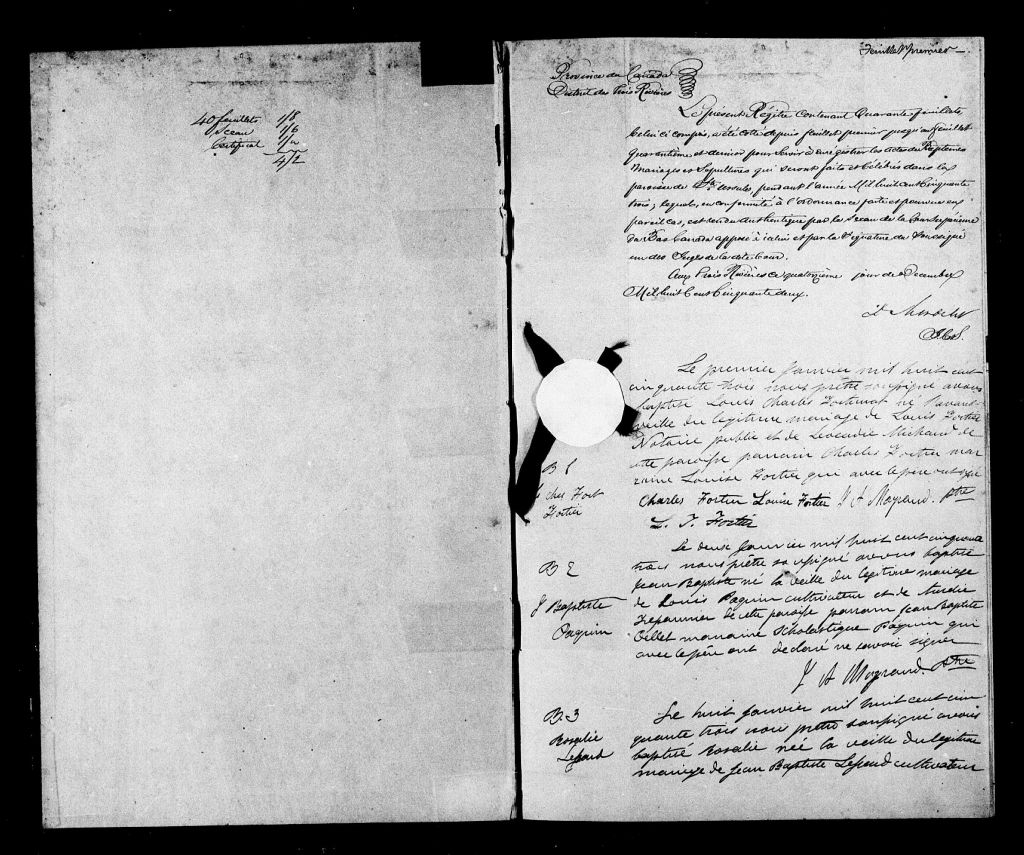 40 feuillets 1/8
Sceau 1/6
Certificat 1/"
4/2
Feuillet premier
Province du Canada
District des Trois Rivières
Le présent Régitre contenant Quarante feuillets,
Celui ci compris, a été coté depuis feuillet premier jusqu'au feuillet
Quarantième et dernier pour Servir à enrégistrer les actes de Baptêmes
Mariages et Sépultures qui seront faits et Célébrés dans la
paroisse de Ste. Ursule, pendant l'année Mil huit cent Cinquante
trois; lequel, en conformité à l'ordonnance faite et pourvue en
pareil cas, est rendu authentique par le Sceau de la Cour Supérieure
du Bas Canada apposé à icelui et par la Signature du Soussigné
un des Juges de la dite Cour.
Aux Trois Rivières ce quatorzième jour de Decembre
Mil huit Cent Cinquante deux.
Le premier Janvier mil huit cent
cinquante trois nous prêtre soussigné avons
baptisé Louis Charles Fortunat né l'avant
veille du légitime mariage de Louis Fortier
Notaire public et de Leocadie Michaud de
cette paroisse parrain Charles Fortier mar
raine Louise Fortier qui avec le père ont signé
B 1
Chs Fort
Fortier
Charles Fortier Louise Fortier J A Mayrand. Ptre
L. T. Fortier
Le deux Janvier mil huit cent cinquante
trois nous prêtre soussigné avons baptisé
B 2
Jean Baptiste né la veille du légitime mariage
J Baptiste
Paquin
de Louis Paquin cultivateur et de
de cette paroisse parrain Jean Baptiste
marraine Scholastique Paquin qui
avec le père ont declaré ne savoir signer
J A Mayrand. Ptre
B. 3
Rosalie
Lessard
Le huit Janvier mil huit cent cin
quante trois nous prêtre soussigné avons
baptisé Rosalie née la veille du légitime
mariage de Jean Baptiste Lessard cultivateur